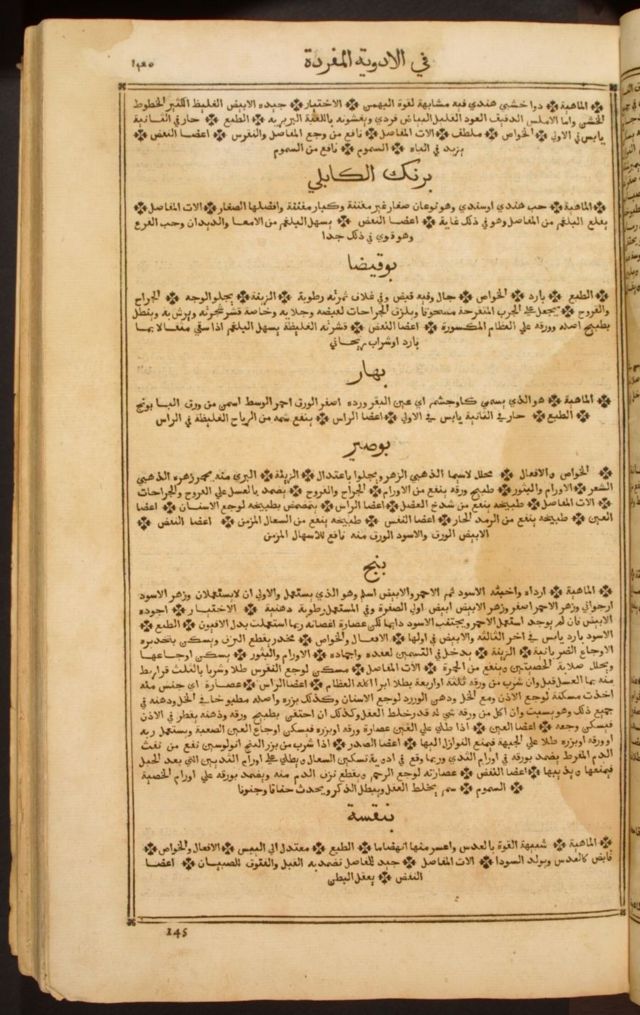 في الادوية المفردة
١٤٥
❖ الماهية ❖ دوا خشبي هندي فيه مشابهة لقوة البهمن ❖ الاختيار ❖ جيده الابيض الغليظ الكثير الخطوط
الخشن واما الاملس الدقيق العود القليل البياض فردي ويغشونه باللعبة البربريه ❖ الطبع ❖ حار في الثانية
يابس في الاولي ❖ الخواص ❖ ملطف ❖ الات المفاصل ❖ نافع من وجع المفاصل والنقرس ❖ اعضا النفض ❖
يزيد في الباه ❖ السموم ❖ نافع من السموم
برنك الكابلي
❖ الماهية ❖ حب هندي اوسندي وهو نوعان صغار غير مفتتة وكبار مفتتة وافضلها الصغار ❖ الات المفاصل ❖
يقلع البلغم من المفاصل وهو في ذلك غاية ❖ اعضا النفض ❖ يسهل البلغم من الامعا والديدان وحب القرع
وهو قوي في ذلك جدا
بوقيضا
❖ الطبع ❖ بارد ❖ الخواص ❖ جال وفيه قبض وفي غلاف ثمرته رطوبة ❖ الزينة ❖ يجلو الوجه ❖ الجراح
والقروح ❖ يجعل على الجرب المتقرحة مسحوقا ويلزق الجراحات لقبضه وجلايه وخاصة قشر شجرته ويرش به وينطل
بطبيخ اصله وورقه علي العظام المكسورة ❖ اعضا النفض ❖ قشرته الغليظة يسهل البلغم اذا سقي مثقالا بما
بارد او شراب ريحاني
بهار
❖ الماهية ❖ هو الذي يسمي كاوجشم اي عين البقر ورده اصفر الورق احمر الوسط اسمن من ورق البابونج
❖ الطبع ❖ حار في الثانية يابس في الاولي ❖ اعضا الراس ❖ ينفع شمه من الرياح الغليظة في الراس
بوصير
❖ الخواص والافعال ❖ محلل لاسيما الذهبي الزهر ويجلوا باعتدال ❖ الزينة ❖ البري منه يحمر زهره الذهبي
الشعر ❖ الاورام والبثور ❖ طبيخ ورقه ينفع من الاورام ❖ الجراح والقروح ❖ يضمد بالعسل علي القروح والجراحات
❖ الات المفاصل ❖ طبيخه ينفع من شدخ العضل ❖ اعضا الراس ❖ يتمضمض بطبيخه لوجع الاسنان ❖ اعضا
العين ❖ طبيخه ينفع من الرمد الحار ❖ اعضا النفس ❖ طبيخه ينفع من السعال المزمن ❖ اعضا النفض ❖
الابيض الورق والاسود الورق منه نافع للاسهال المزمن
بنج
❖ الماهية ❖ ارداه واخبثه الاسود ثم الاحمر والابيض اسلم وهو الذي يستعمل والاولي ان لا يستعملان وزهر الاسود
ارجواني وزهر الاحمر اصفر وزهر الابيض ابيض اولي الصفرة وفي المستعمل رطوبة دهنية ❖ الاختيار ❖ اجوده
الابيض فان لم يوجد استعمل الاحمر ويجتنب الاسود دايما لكن عصارة اغصانه ربما استعملت بدل الافيون ❖ الطبع ❖
الاسود بارد يابس في اخر الثالثة والابيض في اولها ❖ الافعال والخواص ❖ مخدر يقطع النزف ويسكن بتخديره
الاوجاع الضربانية ❖ الزينة ❖ يدخل في التسمين لعقده واجماده ❖ الاورام والبثور ❖ يسكن اوجاعها
ويحلل صلابة الخصيتين وينفع من الحمرة ❖ الات المفاصل ❖ مسكن لوجع النقرس طلا وشربا بالثلث قراريط
منه بما العسل قيل وان شرب من ورقه ثلثة او اربعة بطلا ابرا اكلة العظام ❖ اعضا الراس ❖ عصارة اي جنس منه
اخذت مسكنة لوجع الاذن ومع الخل ودهن الورد لوجع الاسنان وكذلك بزره واصله مطبوخا في الخل ودهنه في
جميع ذلك وهو يسبت وان اكل من ورقه شي له قدر خلط العقل وكذلك ان احتقن بطبيخ ورقه ودهنه يقطر في الاذن
فيسكن وجعه ❖ اعضا العين ❖ اذا طلي علي العين عصارة ورقه او بزره فيسكن اوجاع العين الصعبة ويستعمل زبه
او ورقه او بزره طلا علي الجبهة فيمنع النوازل اليها ❖ اعضا الصدر ❖ اذا شرب من بزر البنج انولوسين نفع من نفث
الدم المفرط يضمد بورقه في اورام الثدي وربما وقع في ادوية تسكين السعال ويطلي على اورام الثديين التي بعد الحبل
فيمنعها ويذيبها ❖ اعضا النفض ❖ عصارته لوجع الرحم ويقطع نزف الدم منه ويضمد بورقه علي اورام الخصية
❖ السموم ❖ سم يخلط العقل ويبطل الذكر ويحدث خناقا وجنونا
بنقسة
❖ الماهية ❖ شبيهة القوة بالعدس واعسر منها انهضاما ❖ الطبع ❖ معتدل الي اليبس ❖ الافعال والخواص ❖
قابض كالعدس ويولد السودا ❖ الات المفاصل ❖ جيد للمفاصل تضمد به القيل والفتوق للصبيان ❖ اعضا
النفض ❖ يعقل البطن
145